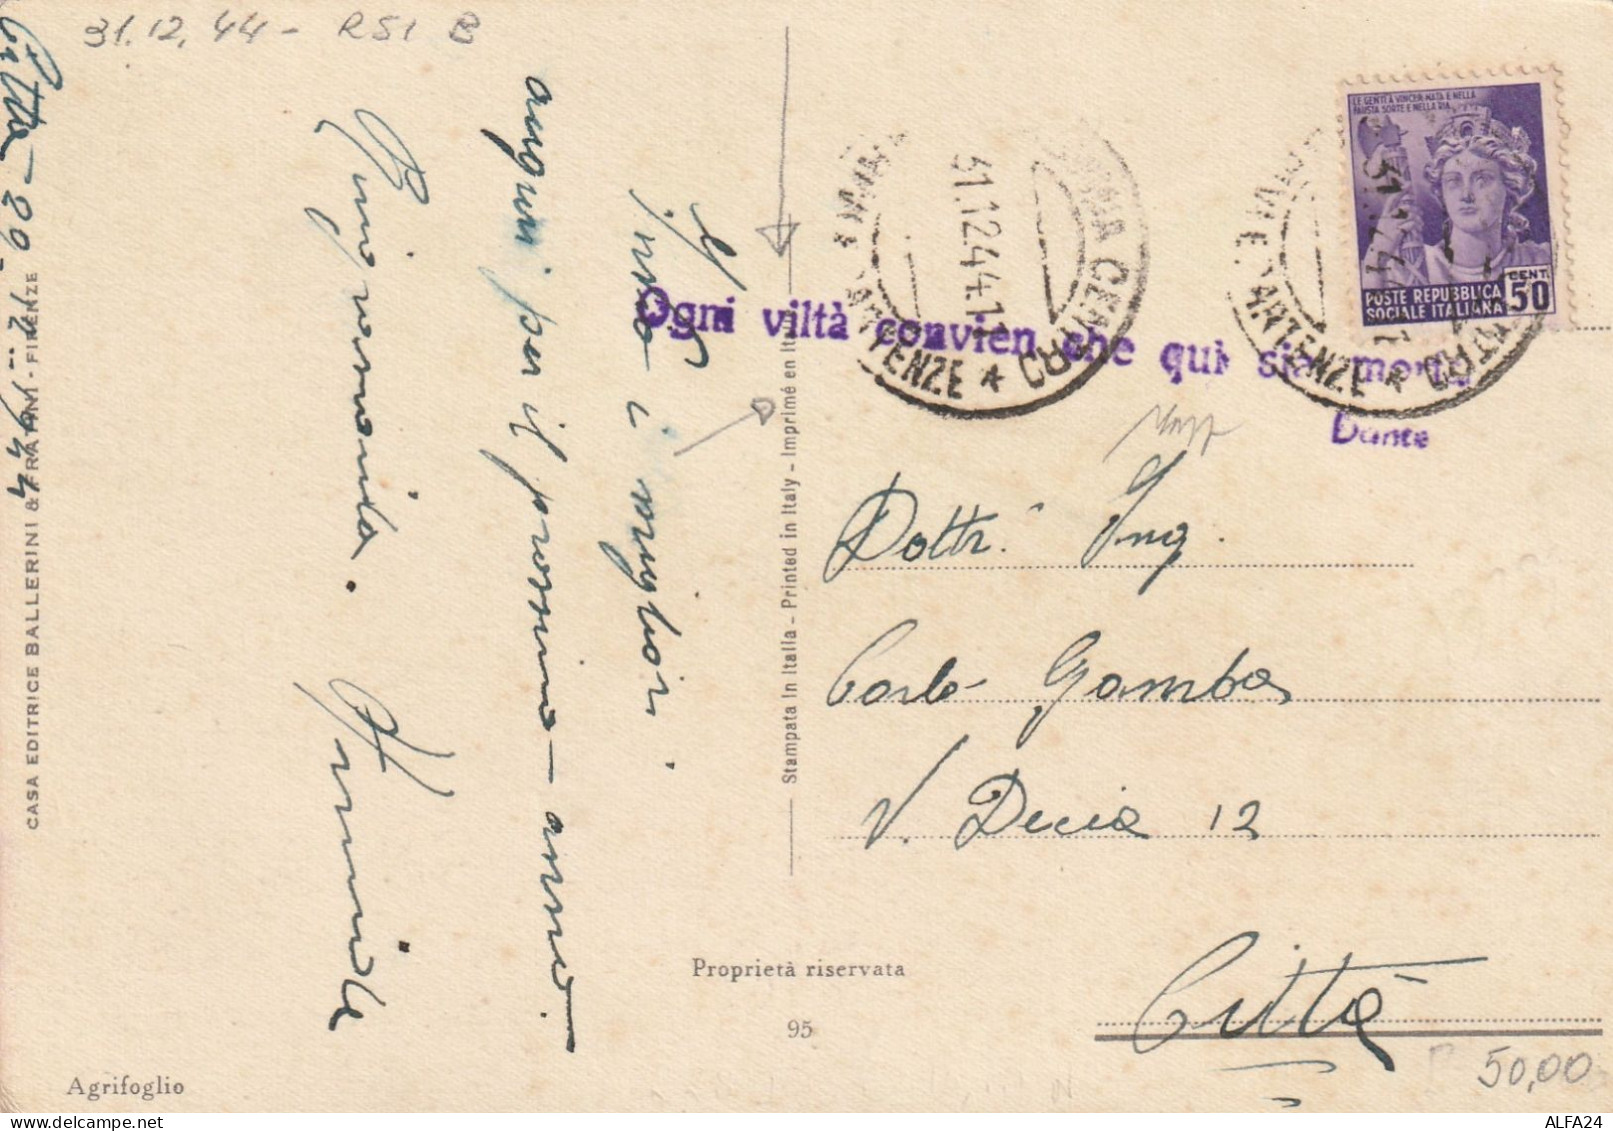 31.12.44 - RSI B
Città 29-12-1944
CASA EDITRICE BALLERINI & FRATINI - FIRENZE
i migliori
auguri per il prossimo anno.
Agrifoglio
Stampata in Italia - Printed in Italy - Imprimé en Italie
Proprietà riservata
95
LE GENTI A VINCER NATA E NELLA
FAUSTA SORTE E NELLA RIA
CENT.
50
POSTE REPUBBLICA
SOCIALE ITALIANA
31.12.44.11
PARTENZE * CENTRO
PARTENZE * CENTRO
Ogni viltà convien che quì sia morta
Dante
Dottr. Ing.
Carlo Gamba
V. Decia 12
Città
50,00
ALFA24